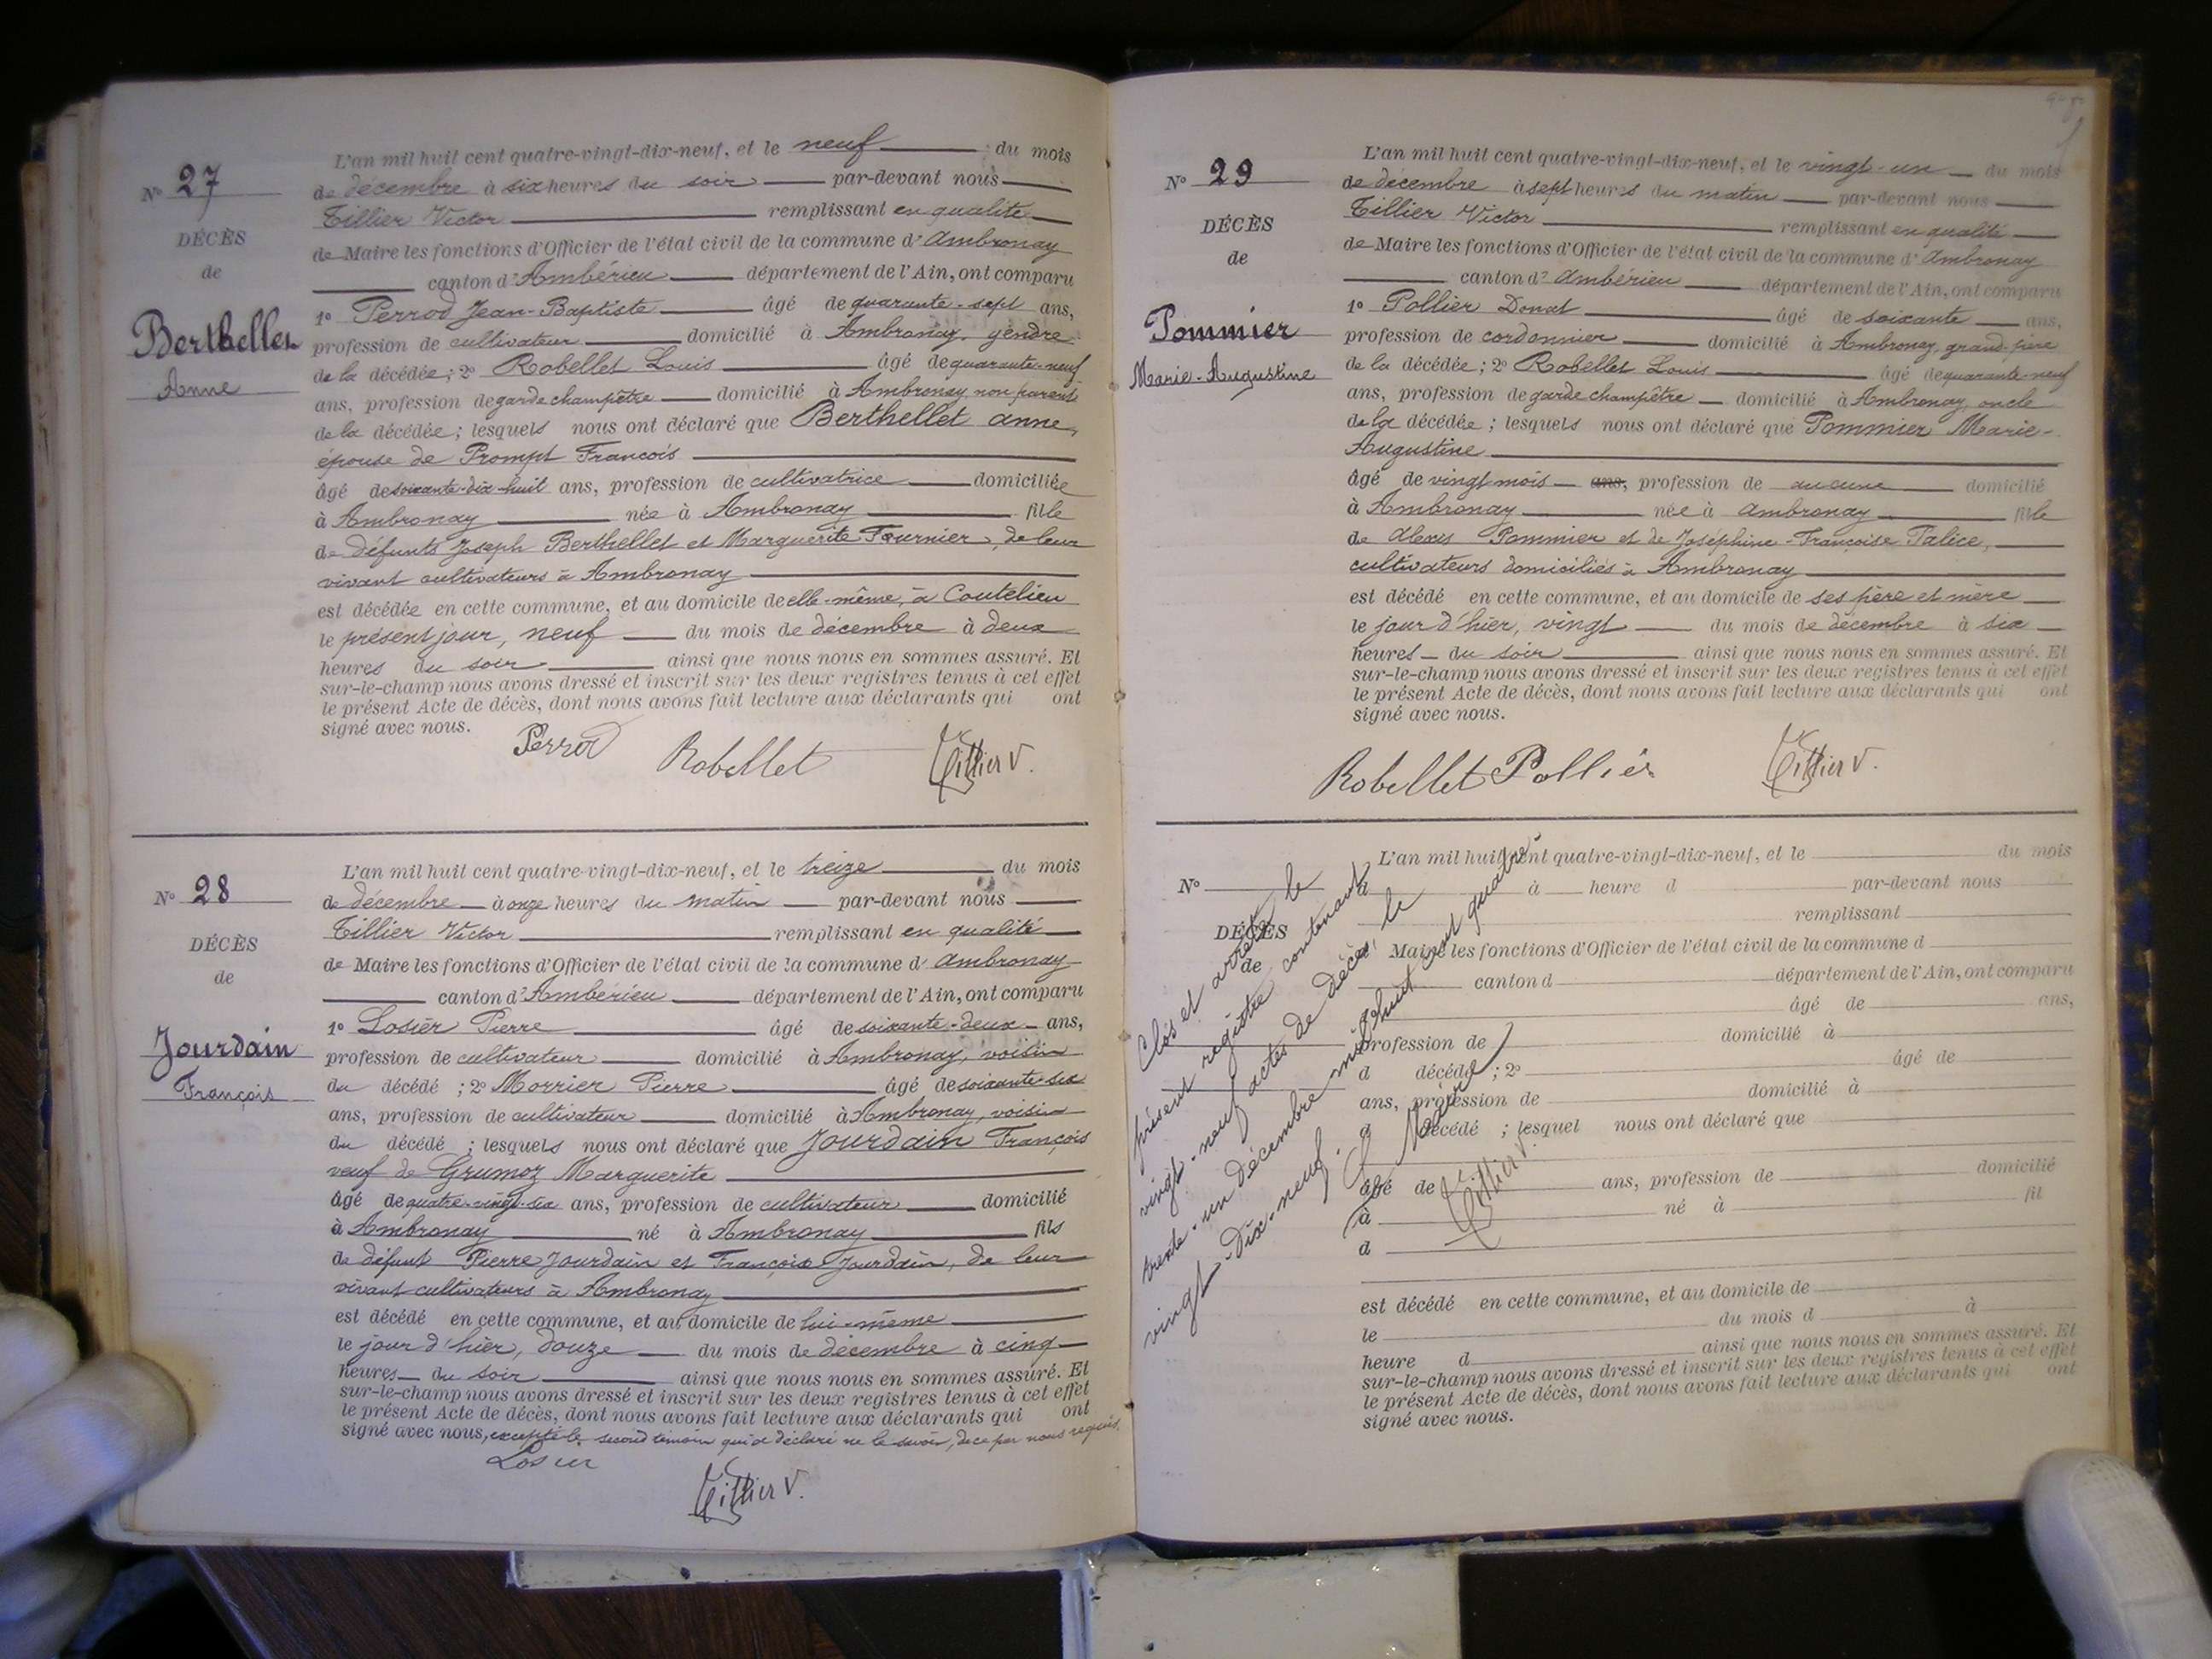 N° 27
DÉCÈS
de
Berthellet
Anne
L'an mil huit cent quatre-vingt-dix-neuf, et le neuf du mois
de décembre à six heures du soir par-devant nous
Tillier Victor remplissant en qualité
de Maire les fonctions d'Officier de l'état civil de la commune d'Ambronay
canton d'Ambérieu département de l'Ain, ont comparu
1° Perrod Jean-Baptiste âgé de quarante-sept ans,
profession de cultivateur domicilié à Ambronay, gendre
de la décédée ; 2° Robellet Louis âgé de quarante-neuf
ans, profession de garde champêtre domicilié à Ambronay, non parent
de la décédée ; lesquels nous ont déclaré que Berthellet anne,
épouse de Prompt François
âgé de soixante-dix-huit ans, profession de cultivatrice domiciliée
à Ambronay née à Ambronay fille
de défunts Joseph Berthellet et Marguerite Fournier, de leur
vivant cultivateurs à Ambronay
est décédée en cette commune, et au domicile de elle-même, à Coutelieu
le présent jour, neuf du mois de décembre à deux
heures du soir ainsi que nous nous en sommes assuré. Et
sur-le-champ nous avons dressé et inscrit sur les deux registres tenus à cet effet
le présent Acte de décès, dont nous avons fait lecture aux déclarants qui ont
signé avec nous.
Perrod Robellet Tillier V.
N° 28
DÉCÈS
de
Jourdain
François
L'an mil huit cent quatre-vingt-dix-neuf, et le treize du mois
de décembre à onze heures du matin par-devant nous
Tillier Victor remplissant en qualité
de Maire les fonctions d'Officier de l'état civil de la commune d'Ambronay
canton d'Ambérieu département de l'Ain, ont comparu
1° Losier Pierre âgé de soixante-deux ans,
profession de cultivateur domicilié à Ambronay, voisin
du décédé ; 2° Morrier Pierre âgé de soixante-six
ans, profession de cultivateur domicilié à Ambronay, voisin
du décédé ; lesquels nous ont déclaré que Jourdain François
veuf de Grumoz Marguerite
âgé de quatre-vingt-six ans, profession de cultivateur domicilié
à Ambronay né à Ambronay fils
de défunt Pierre Jourdain et Françoise Jourdain, de leur
vivant cultivateurs à Ambronay
est décédé en cette commune, et au domicile de lui-même
le jour d'hier, douze du mois de décembre à cinq
heures du soir ainsi que nous nous en sommes assuré. Et
sur-le-champ nous avons dressé et inscrit sur les deux registres tenus à cet effet
le présent Acte de décès, dont nous avons fait lecture aux déclarants qui ont
signé avec nous, excepté le second témoin qui a déclaré ne le savoir, de ce par nous requis.
Losier
Tillier V.
N° 29
DÉCÈS
de
Pommier
Marie-Augustine
L'an mil huit cent quatre-vingt-dix-neuf, et le vingt-un du mois
de décembre à sept heures du matin par-devant nous
Tillier Victor remplissant en qualité
de Maire les fonctions d'Officier de l'état civil de la commune d'Ambronay
canton d'Ambérieu département de l'Ain, ont comparu
1° Pollier Donat âgé de soixante ans,
profession de cordonnier domicilié à Ambronay, grand-père
de la décédée ; 2° Robellet Louis âgé de quarante-neuf
ans, profession de garde champêtre domicilié à Ambronay, oncle
de la décédée ; lesquels nous ont déclaré que Pommier Marie-
Augustine
âgé de vingt mois ans, profession de aucune domicilié
à Ambronay née à Ambronay fille
de Alexis Pommier et de Joséphine-Françoise Palice,
cultivateurs domiciliés à Ambronay
est décédé en cette commune, et au domicile de ses père et mère
le jour d'hier, vingt du mois de décembre à six
heures du soir ainsi que nous nous en sommes assuré. Et
sur-le-champ nous avons dressé et inscrit sur les deux registres tenus à cet effet
le présent Acte de décès, dont nous avons fait lecture aux déclarants qui ont
signé avec nous.
Robellet Pollier Tillier V.
N°
DÉCÈS
de
L'an mil huit cent quatre-vingt-dix-neuf, et le du mois
d à heure d par-devant nous
remplissant
Maire les fonctions d'Officier de l'état civil de la commune d
canton d département de l'Ain, ont comparu
âgé de ans,
profession de domicilié à
d décédé ; 2° âgé de
ans, profession de domicilié à
d décédé ; lesquel nous ont déclaré que
âgé de ans, profession de domicilié
à né à fil
d
est décédé en cette commune, et au domicile de
le du mois d à
heure d ainsi que nous nous en sommes assuré. Et
sur-le-champ nous avons dressé et inscrit sur les deux registres tenus à cet effet
le présent Acte de décès, dont nous avons fait lecture aux déclarants qui ont
signé avec nous.
Clos et arrêté le
présent registre contenant
vingt-neuf actes de décès, le
trente-un décembre mil huit cent quatre-
vingt-dix-neuf.
Le Maire,
Tillier V.